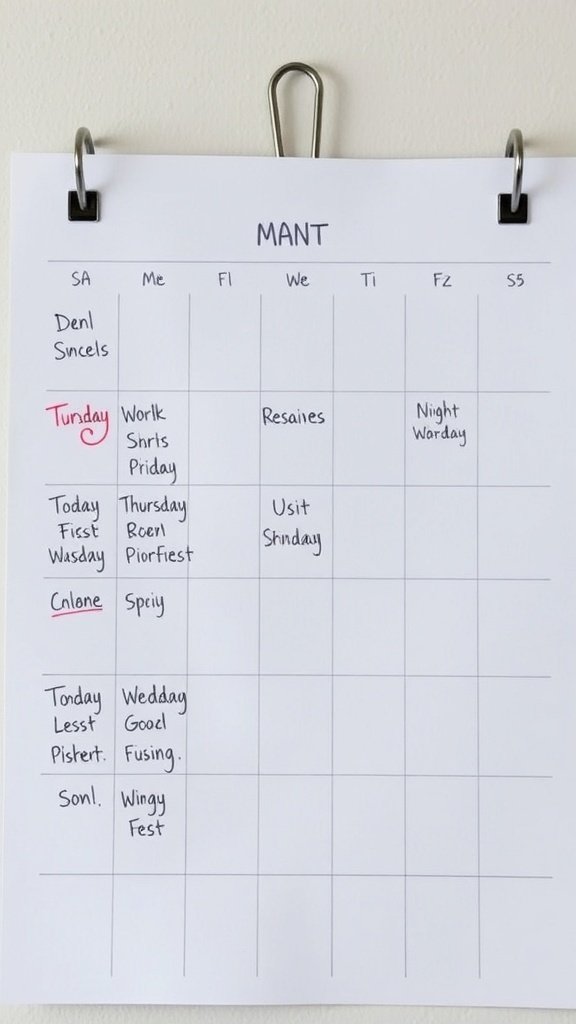 MANT
SA Me Fl We Ti FZ S5
Denl
Sncels
Tunday Worlk Resaires Niight
Snrls Warday
Priday
Today Thursday Usit
Fisst Roerl Shnday
Wasday Piorfiest
Cnlane Spciy
Tonday Wedday
Lesst Goozl
Pishert. Fusing.
Sonl. Wingy
Fest